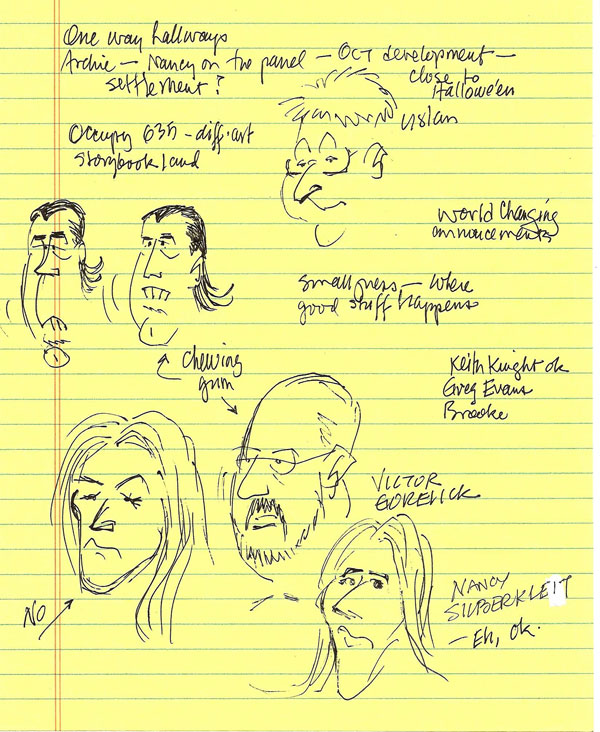 One way hallways
Archie — Nancy on the panel — OCT development —
settlement?
close to
Hallowe'en
uslan
Occupy 635 - diff. art
storybook land
World Changing
annoucements
small press — where
good stuff happens
chewing
gum
Keith Knight ok
Greg Evans
Brooke
VICTOR
GORELICK
NO
NANCY
SILBERKLEIT
— Eh, ok.